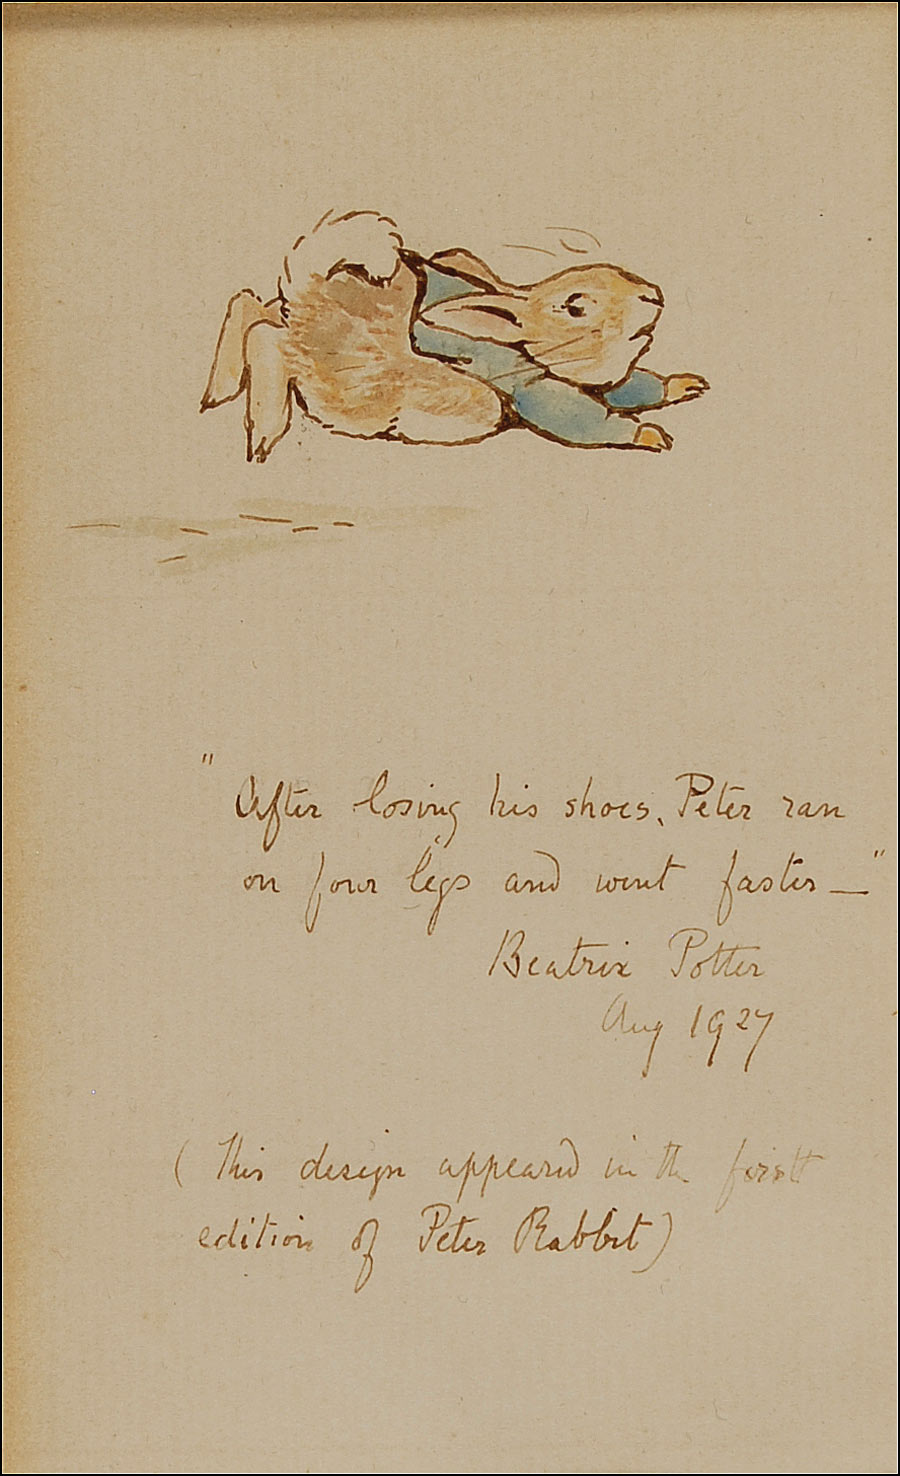 "After losing his shoes, Peter ran
on four legs and went faster—"
Beatrix Potter
Aug 1927
(This design appeared in the first
edition of Peter Rabbit)